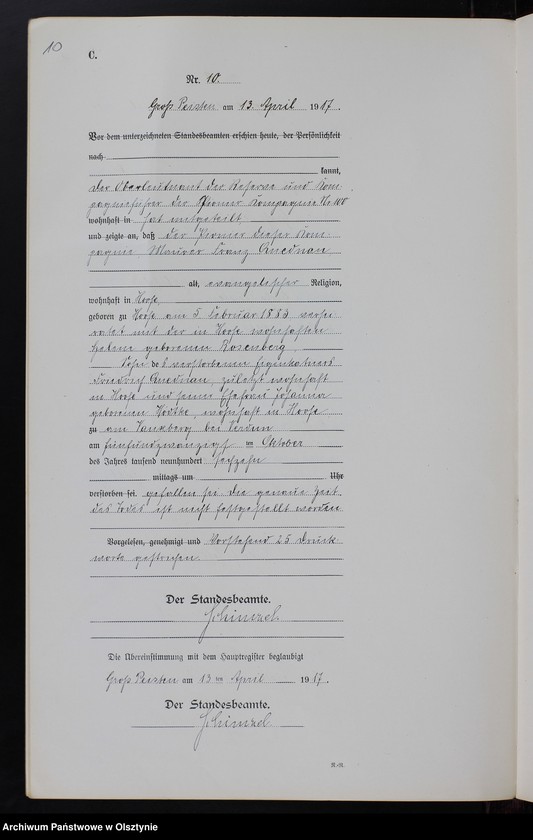 10
C.
Nr. 10.
Groß Peisten am 13. April 1917.
Vor dem unterzeichneten Standesbeamten erschien heute, der Persönlichkeit
nach
kannt,
der Oberleutnant der Reserve und Kom-
pagnieführer der Pionier Kompagnie Nr
wohnhaft in hat mitgeteilt
und zeigte an, daß der Pionier dieser Kom-
pagnie Maurer Franz Quednau
alt, evangelischer Religion,
wohnhaft in Hoofe
geboren zu Hoofe am 5. Februar 1883 verhei-
ratet mit der in Hoofe wohnhaften
Helene geborenen Rosenberg
Sohn des verstorbenen Eigenkätners
Friedrich Quednau, zuletzt wohnhaft
in Hoofe und seiner Ehefrau Johanna
geborenen wohnhaft in Hoofe
zu am bei Verdun
am fünfundzwanzigst en Oktober
des Jahres tausend neunhundert sechzehn
mittags um Uhr
verstorben sei. gefallen sei die genaue Zeit
des Todes ist nicht festgestellt worden
Vorgelesen, genehmigt und Vorstehend 25 Druck-
worte gestrichen.
Der Standesbeamte.
Schinzel
Die Übereinstimmung mit dem Hauptregister beglaubigt
Groß Peisten am 13 ten April 1917.
Der Standesbeamte.
Schinzel
Archiwum Państwowe w Olsztynie